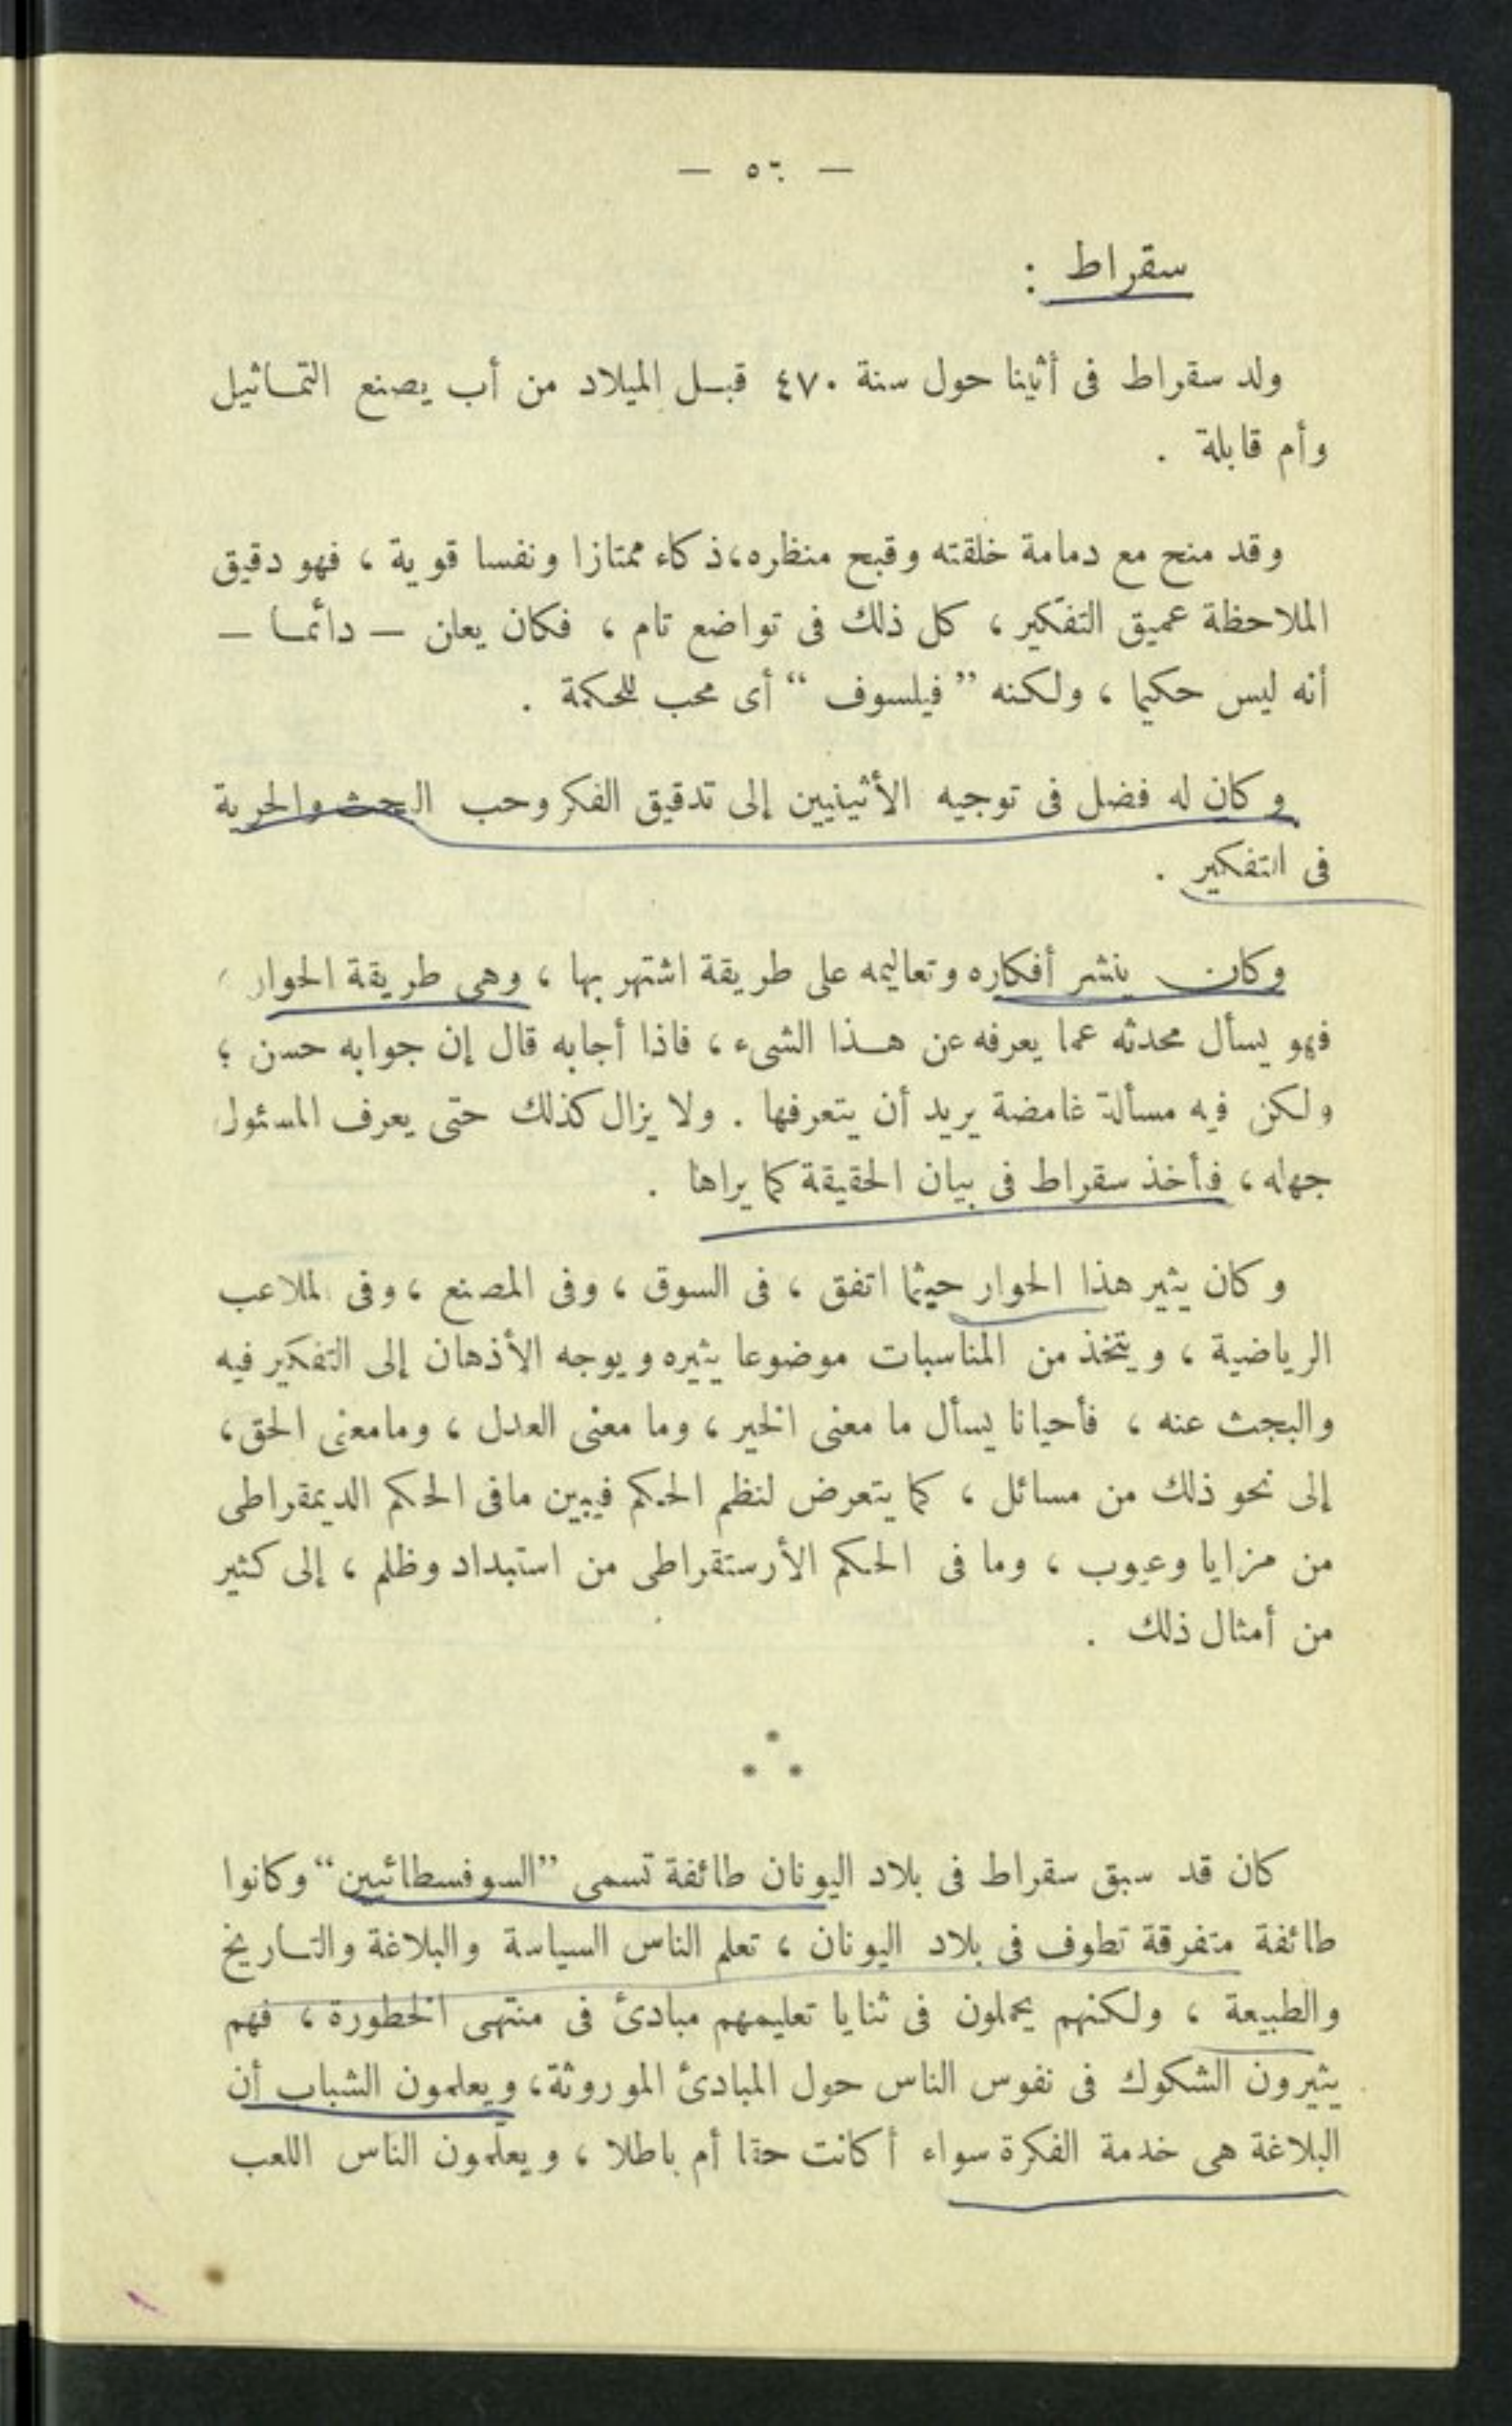 — ٥٦ —
سقراط :
ولد سقراط فى أثينا حول سنة ٤٧٠ قبـل الميلاد من أب يصنع التمـاثيل
وأم قابلة .
وقد منح مع دمامة خلقته وقبح منظره، ذكاء ممتازا ونفسا قوية ، فهو دقيق
الملاحظة عميق التفكير ، كل ذلك فى تواضع تام ، فكان يعلن — دائمـا —
أنه ليس حكيما ، ولكنه ” فيلسوف “ أى محب للحكمة .
وكان له فضل فى توجيه الأثينيين إلى تدقيق الفكر وحب البحث والحرية
فى التفكير .
وكان ينشر أفكاره وتعاليمه على طريقة اشتهر بها ، وهى طريقة الحوار ،
فهو يسأل محدثه عما يعرفه عن هـذا الشىء ، فاذا أجابه قال إن جوابه حسن ؛
ولكن فيه مسألة غامضة يريد أن يتعرفها . ولا يزال كذلك حتى يعرف المسئول
جهله ، فأخذ سقراط فى بيان الحقيقة كما يراها .
وكان يثير هذا الحوار حيثما اتفق ، فى السوق ، وفى المصنع ، وفى الملاعب
الرياضية ، ويتخذ من المناسبات موضوعا يثيره ويوجه الأذهان إلى التفكير فيه
والبحث عنه ، فأحيانا يسأل ما معنى الخير ، وما معنى العدل ، وما معنى الحق ،
إلى نحو ذلك من مسائل ، كما يتعرض لنظم الحكم فيبين ما فى الحكم الديمقراطى
من مزايا وعيوب ، وما فى الحكم الأرستقراطى من استبداد وظلم ، إلى كثير
من أمثال ذلك .
كان قد سبق سقراط فى بلاد اليونان طائفة تسمى ”السوفسطائيين“ وكانوا
طائفة متفرقة تطوف فى بلاد اليونان ، تعلم الناس السياسة والبلاغة والتـاريخ
والطبيعة ، ولكنهم يحملون فى ثنايا تعليمهم مبادئ فى منتهى الخطورة ، فهم
يثيرون الشكوك فى نفوس الناس حول المبادئ الموروثة ، ويعلمون الشباب أن
البلاغة هى خدمة الفكرة سواء أكانت حقا أم باطلا ، ويعلّمون الناس اللعب